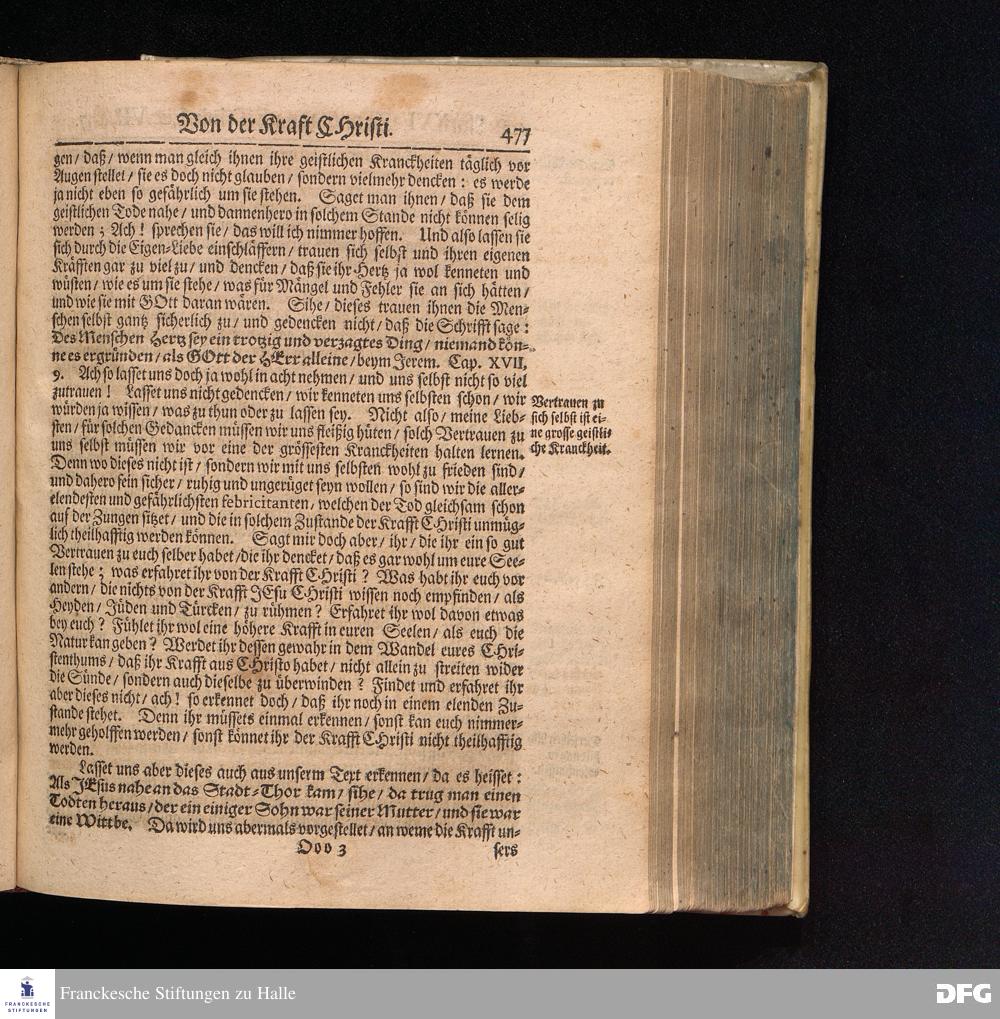 Von der Kraft CHristi.
477
gen/ daß/ wenn man gleich ihnen ihre geistlichen Kranckheiten täglich vor
Augen stellet/ sie es doch nicht glauben/ sondern vielmehr dencken: es werde
ja nicht eben so gefährlich um sie stehen. Saget man ihnen/ daß sie dem
geistlichen Tode nahe/ und dannenhero in solchem Stande nicht können selig
werden; Ach! sprechen sie/ das will ich nimmer hoffen. Und also lassen sie
sich durch die Eigen-Liebe einschläffern/ trauen sich selbst und ihren eigenen
Kräfften gar zu viel zu/ und dencken/ daß sie ihr Hertz ja wol kenneten und
wüsten/ wie es um sie stehe/ was für Mängel und Fehler sie an sich hätten/
und wie sie mit GOtt daran wären. Sihe/ dieses trauen ihnen die Men-
schen selbst gantz sicherlich zu/ und gedencken nicht/ daß die Schrifft sage:
Des Menschen Hertz sey ein trotzig und verzagtes Ding/ niemand kön-
ne es ergründen/ als GOtt der HErr alleine/ beym Jerem. Cap. XVII,
9. Ach so lasset uns doch ja wohl in acht nehmen/ und uns selbst nicht so viel
zutrauen! Lasset uns nicht gedencken/ wir kenneten uns selbsten schon/ wir
würden ja wissen/ was zu thun oder zu lassen sey. Nicht also/ meine Lieb-
sten/ für solchen Gedancken müssen wir uns fleißig hüten/ solch Vertrauen zu
uns selbst müssen wir vor eine der grössesten Kranckheiten halten lernen.
Denn wo dieses nicht ist/ sondern wir mit uns selbsten wohl zu frieden sind/
und dahero fein sicher/ ruhig und ungerüget seyn wollen/ so sind wir die aller-
elendesten und gefährlichsten febricitanten/ welchen der Tod gleichsam schon
auf der Zungen sitzet/ und die in solchem Zustande der Krafft CHristi unmüg-
lich theilhafftig werden können. Sagt mir doch aber/ ihr/ die ihr ein so gut
Vertrauen zu euch selber habet/ die ihr dencket/ daß es gar wohl um eure See-
len stehe; was erfahret ihr von der Krafft CHristi? Was habt ihr euch vor
andern/ die nichts von der Krafft JEsu CHristi wissen noch empfinden/ als
Heyden/ Jüden und Türcken/ zu rühmen? Erfahret ihr wol davon etwas
bey euch? Fühlet ihr wol eine höhere Krafft in euren Seelen/ als euch die
Natur kan geben? Werdet ihr dessen gewahr in dem Wandel eures CHri-
stenthums/ daß ihr Krafft aus CHristo habet/ nicht allein zu streiten wider
die Sünde/ sondern auch dieselbe zu überwinden? Findet und erfahret ihr
aber dieses nicht/ ach! so erkennet doch/ daß ihr noch in einem elenden Zu-
stande stehet. Denn ihr müssets einmal erkennen/ sonst kan euch nimmer-
mehr geholffen werden/ sonst könnet ihr der Krafft CHristi nicht theilhafftig
werden.
Lasset uns aber dieses auch aus unserm Text erkennen/ da es heisset:
Als JEsus nahe an das Stadt-Thor kam/ sihe/ da trug man einen
Todten heraus/ der ein einiger Sohn war seiner Mutter/ und sie war
eine Wittbe. Da wird uns abermals vorgestellet/ an weme die Krafft un-
Ooo 3
sers
Vertrauen zu
sich selbst ist ei-
ne grosse geistli-
che Kranckheit.
FRANCKESCHE
STIFTUNGEN
Franckesche Stiftungen zu Halle
DFG